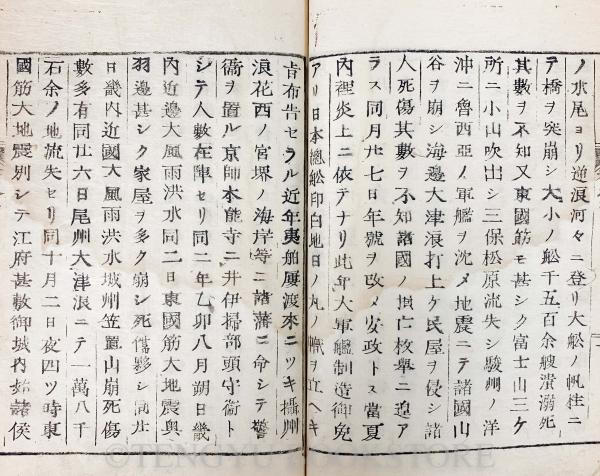 ノ水尾ヨリ逆浪河々ニ登リ大舩ノ帆柱ニ
テ橋ヲ突崩シ大小ノ舩千五百余艘潰溺死
其數ヲ不知又東國筋モ甚シク富士山三ケ
所ニ小山吹出シ三保松原流失シ駿州ノ洋
沖ニ魯西亞ノ軍艦ヲ沈メ地震ニテ諸國山
谷ヲ崩シ海邊大津浪打上ケ民屋ヲ侵シ諸
人死傷其數ヲ不知諸國ノ損亡枚舉ニ遑ア
ラス同月廿七日年號ヲ改メ安政トス當夏
内裡炎上ニ依テナリ此年大軍艦制造御免
アリ日本總舩印白地日ノ丸ノ幟ヲ立ヘキ
旨布告セラル近年夷舶屢渡來ニツキ攝州
浪花西ノ宮堺ノ海岸等ニ諸藩ニ命シテ警
衛ヲ置ル京師本能寺ニ井伊掃部頭守衛ト
シテ人數在陣セリ同二年乙卯八月朔日畿
内近邊大風雨洪水同二日東國筋大地震奥
羽邊甚シク家屋ヲ多ク崩シ死傷夥シ同廿
日畿内近國大風雨洪水城州笠置山崩死傷
數多有同廿六日尾州大津浪ニテ一萬八千
石余ノ地流失セリ同十月二日夜四ツ時東
國筋大地震別シテ江府甚敷御城内始諸侯
©TENGYU BOOKSTORE